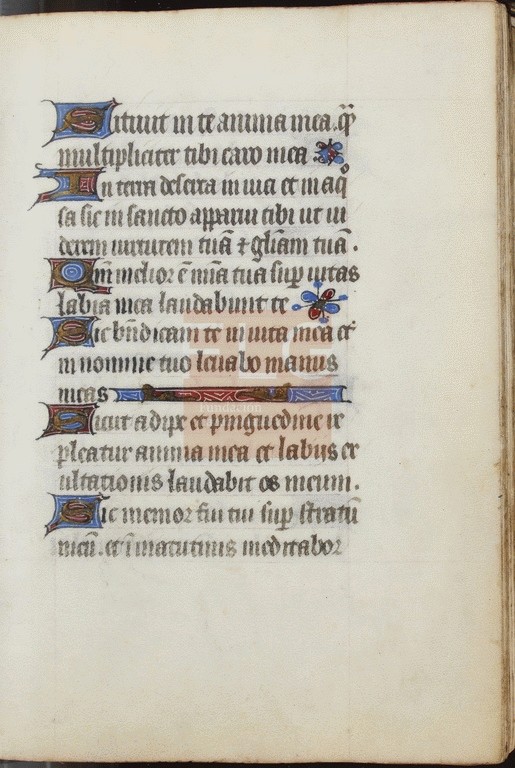 Sitiuit in te anima mea. qͣ
multipliciter tibi caro mea
In terra deserta in uia et inaqͦ
sa sic in sancto apparui tibi ut ui
derem uirtutem tuā ⁊ gl̄iam tuā.
Qm̄ melior ē mīa tua suꝑ uitas
labia mea laudabunt te
Sic bn̄dicam te in uita mea et
in nomine tuo leuabo manus
meas
Sicut adipe et pinguedine re
pleatur anima mea et labiis ex
ultationis laudabit os meum.
Sic memor fui tui suꝑ stratū
meū. et ī matutinis meditabor
FLG
Fundación